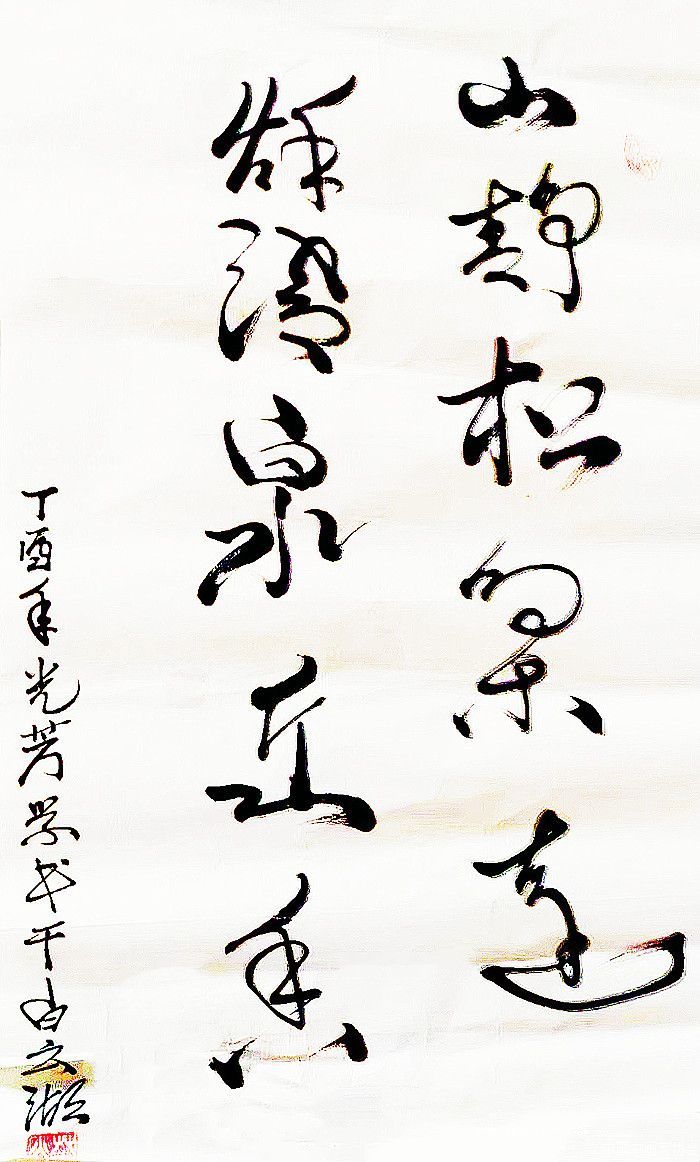 山静松遠
秋清泉香
丁酉年光芳学书于白云湖